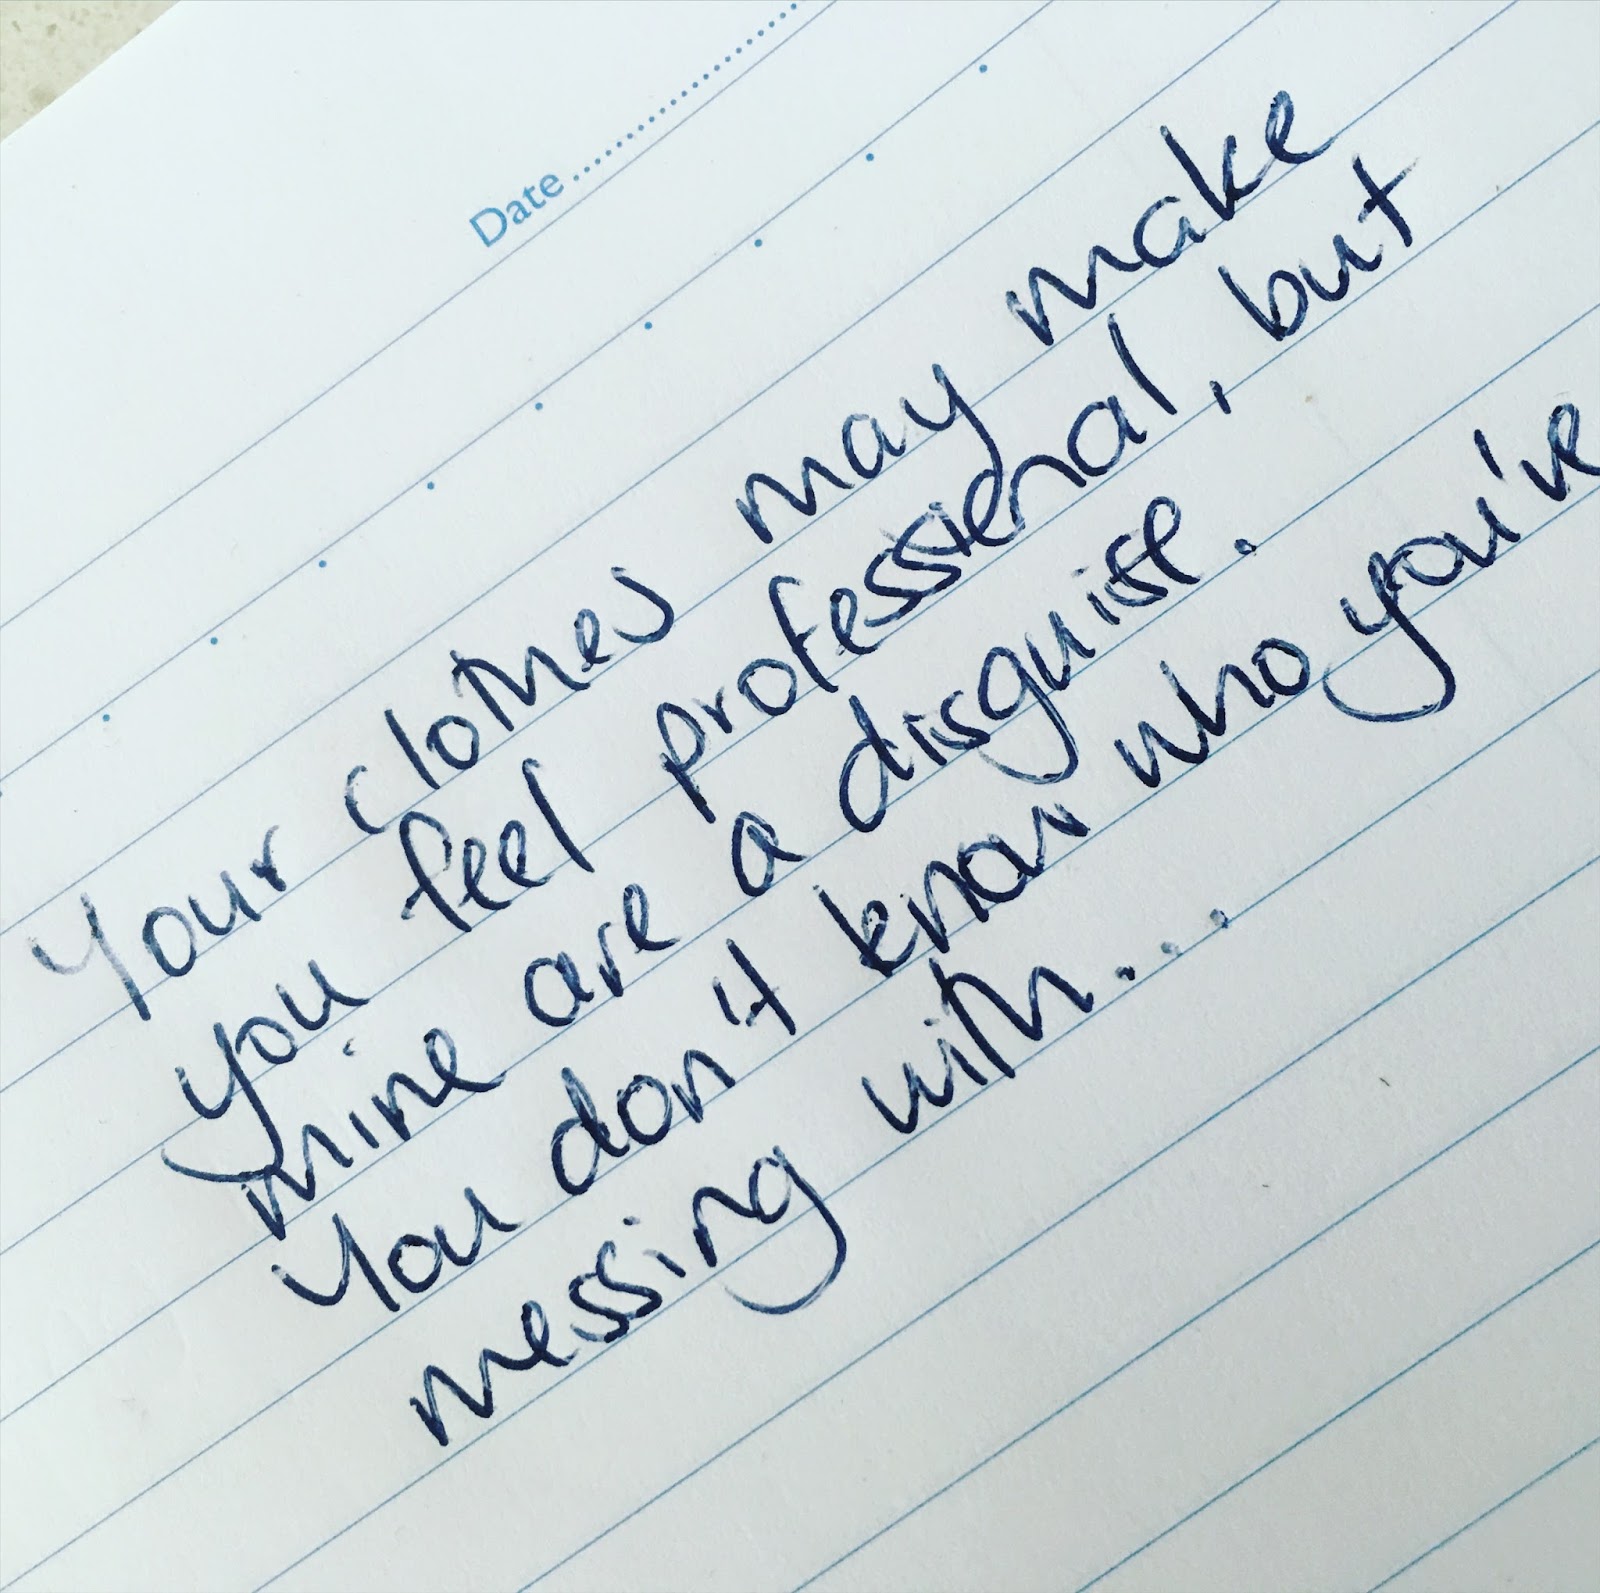 Date..............................
Your clothes may make
you feel professional, but
mine are a disguise.
You don't know who you're
messing with...